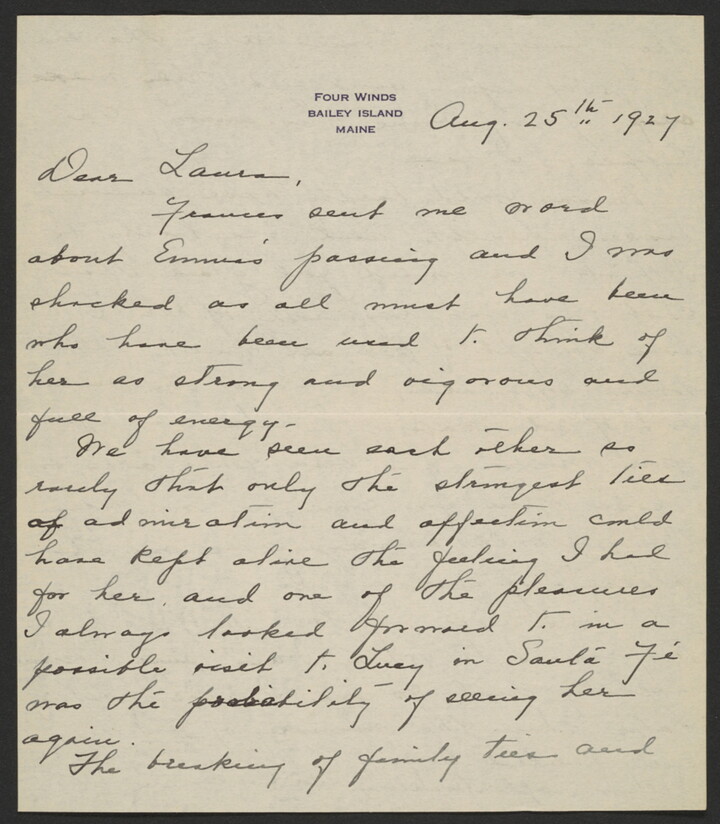 FOUR WINDS
BAILEY ISLAND
MAINE
Aug. 25th 1927
Dear Laura,
Frances sent me word
about Emma's passing and I was
shocked as all must have been
who have been used to think of
her as strong and vigorous and
full of energy.
We have seen each other so
rarely that only the strongest ties
of admiration and affection could
have kept alive the feeling I had
for her, and one of the pleasures
I always looked forward to in a
possible visit to Lucy in Santa Fé
was the probability of seeing her
again.
The breaking of family ties and